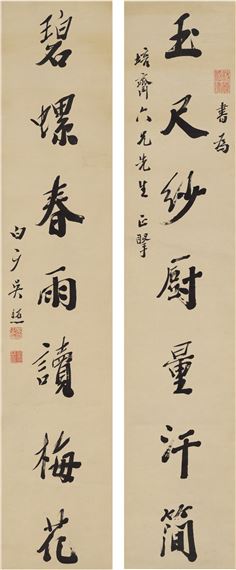 玉尺紗廚量汗簡
書為
培齋六兄先生正擘
碧螺春雨讀梅花
白广吳照